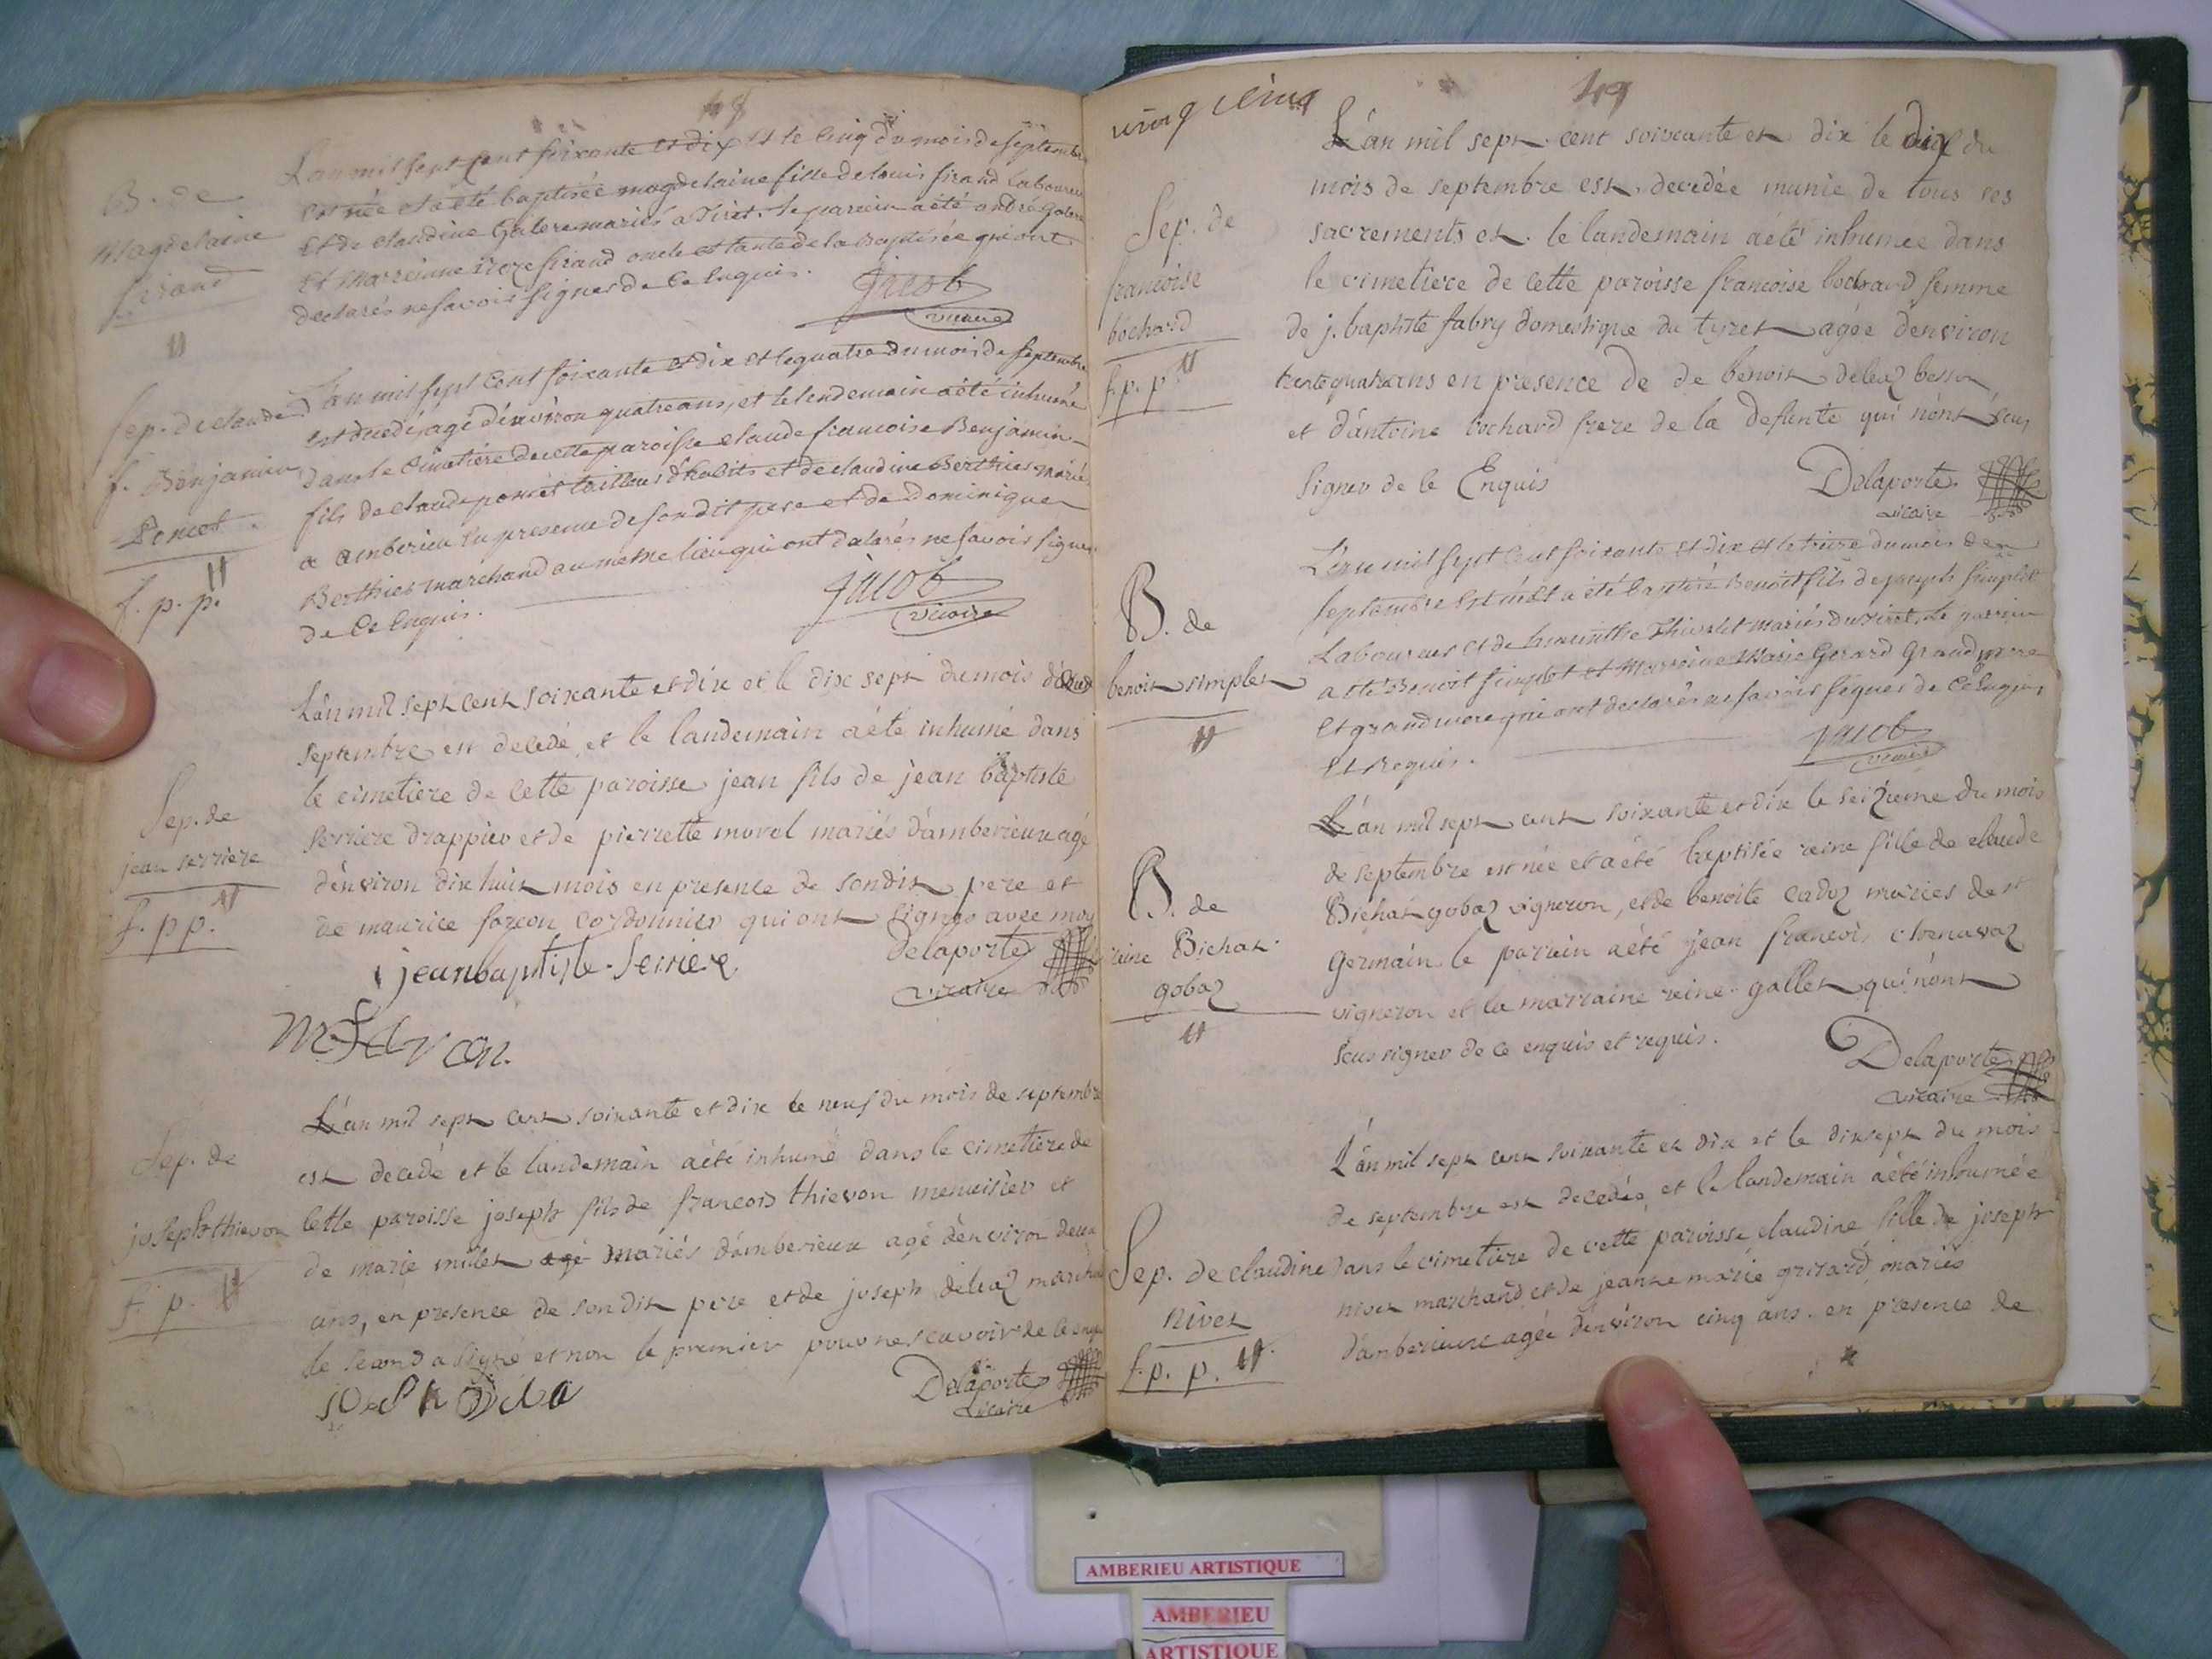 B. de
Magdelaine
sirand
L'an mil sept cent soixante et dix et le cinq du mois de septembre
est née et a été baptisée magdelaine fille de louis sirand laboureur
et de claudine Galere mariés a Tiret. le parrein a été andré galere
et marreinne sirand oncle et tante de la baptisée qui ont
declarés ne savoir signer de ce Enquis.
jacob
vicaire
Sep. de claude
f. Benjamin
Poncet.
f. p. p.
L'an mil sept cent soixante et dix et le quatre du mois de septembre
est decedé, agé d'environ quatre ans, et le lendemain a été inhumé
dans le cimetiére de cette paroisse claude francoise Benjamin
fils de claude poncet tailleur d'habits et de claudine Berthier mariés
a amberieu en presence de son dit pere et de Dominique
Berthier marchand au meme lieu qui ont dalarés ne savoir signer
de ce Enquis.
jacob
vicaire
Sep. de
jean serriere
f. p p.
L'an mil sept cent soixante et dix et le dix sept du mois
septembre est decedé, et le landemain a été inhumé dans
le cimetiere de cette paroisse jean fils de jean baptiste
serriere drappier et de pierrette morel mariés d'amberieux agé
d'environ dix huit mois en presence de sondit pere et
de maurice farcon cordonnier qui ont signés avec moy
jeanbaptiste Seriere
delaporte
vicaire
Sep. de
joseph thievon
f. p.
L'an mil sept cent soixante et dix le neuf du mois de septembre
est decedé et le landemain a été inhumé dans le cimetiere de
cette paroisse joseph fils de francois thievon menuisier et
de marie millet agé mariés d'amberieux agé d'environ deux
ans, en presence de son dit pere et de joseph deleaz marchand
le second a signé et non le premier pour ne scavoir de ce enquis
Delaporte
vicaire
49
Sep. de
francoise
bochard
f. p. p.
L'an mil sept cent soixante et dix le dix du
mois de septembre est decedée munie de tous ses
sacrements et le landemain a été inhumée dans
le cimetiere de cette paroisse francoise bochard femme
de j. baptiste fabry domestique du tyret agée d'environ
trente quatre ans en presence de de benoit deleaz
et d'antoine bochard frere de la defunte qui n'ont sçu
signer de ce Enquis
Delaporte
vicaire
B. de
benoit simplet
L'an mil sept cent soixante et dix et le treize du mois de
septembre est né et a été baptisé Benoit fils de joseph simplet
Laboureur et de mariés du tiret. Le parrein
a été Benoit simplet et Marreine Marie Gerard Grand pere
et grand mere qui ont declarés ne savoir signer de ce Enquis
et Requis.
jacob
vicaire
B. de
raine Bichat
gobaz
L'an mil sept cent soixante et dix le seizieme du mois
de septembre est née et a été baptisée reine fille de claude
Bichat gobaz vigneron, et de benoite cadoz mariés de st
Germain le parrain a été jean francois chenavaz
vigneron et la marraine reine gallet qui n'ont
sçus signer de ce enquis et requis.
Delaporte
vicaire
Sep. de claudine
nivet
f. p. p.
L'an mil sept cent soixante et dix et le dixsept du mois
de septembre est decedée, et le landemain a été inhumée
dans le cimetiere de cette paroisse claudine fille de joseph
nivet marchand et de jeanne marie grizard mariés
d'amberieux agée d'environ cinq ans. en presence de
AMBERIEU ARTISTIQUE
AMBERIEU
ARTISTIQUE